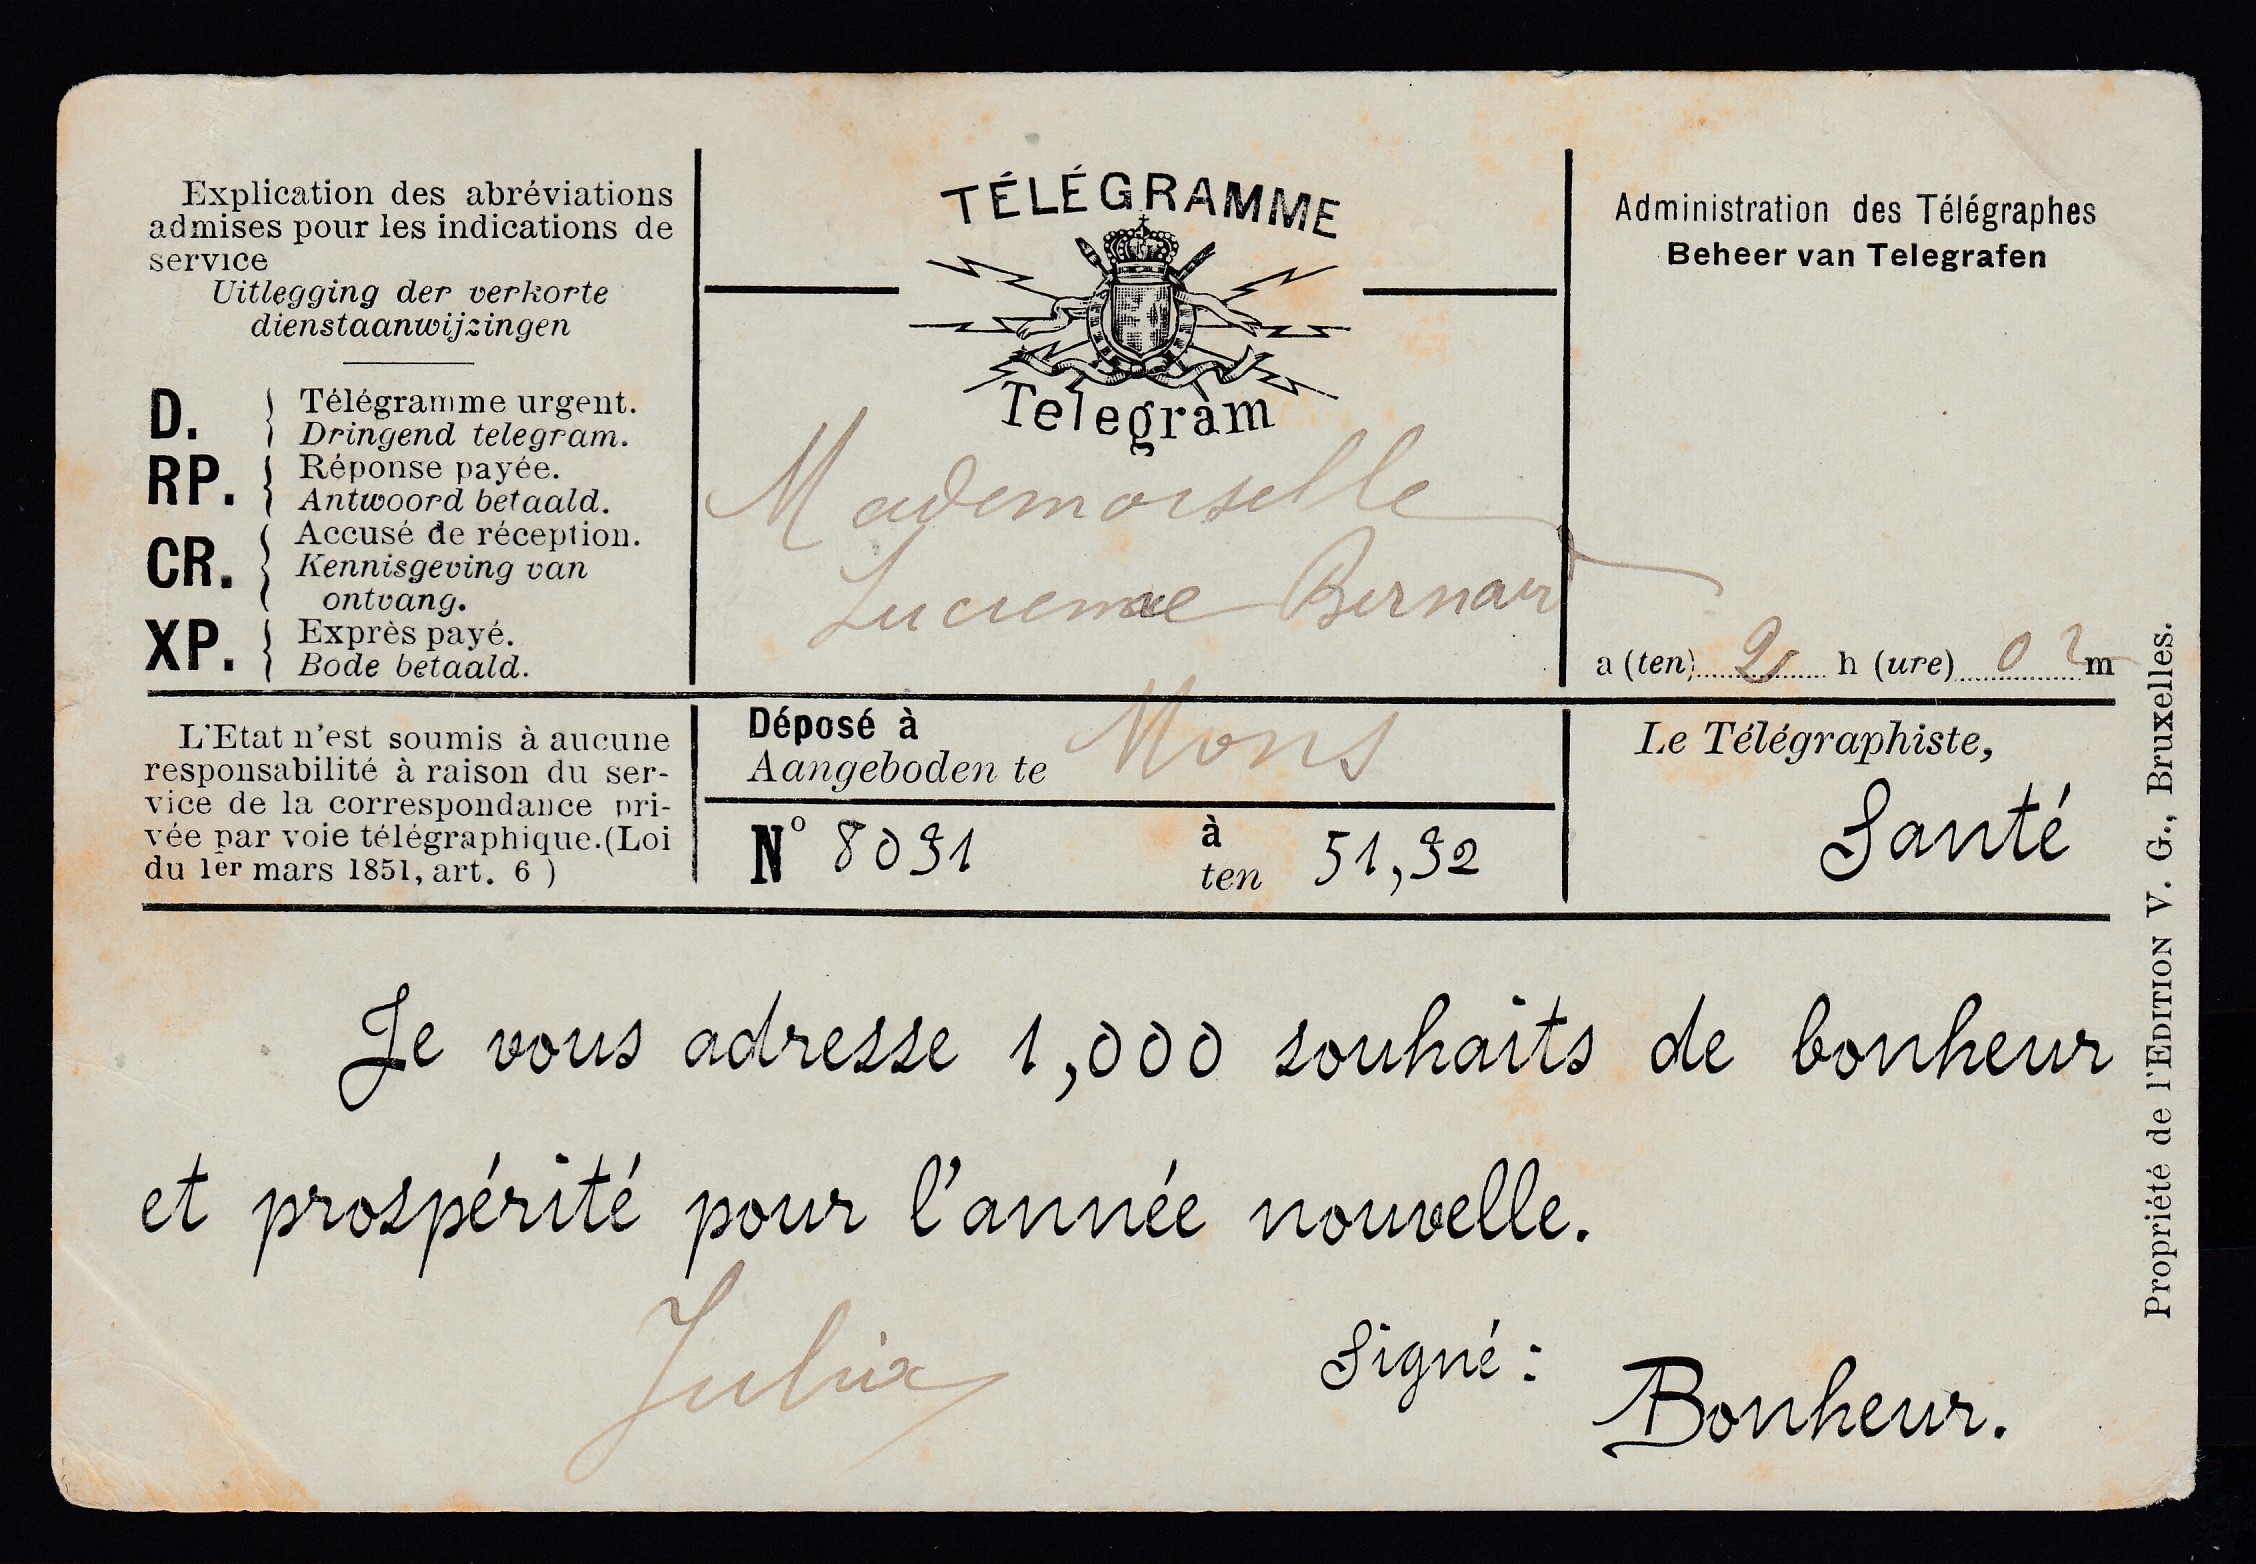 Explication des abréviations
admises pour les indications de
service
Uitlegging der verkorte
dienstaanwijzingen
D. Télégramme urgent.
Dringend telegram.
RP. Réponse payée.
Antwoord betaald.
CR. Accusé de réception.
Kennisgeving van
ontvang.
XP. Exprès payé.
Bode betaald.
L'Etat n'est soumis à aucune
responsabilité à raison du ser-
vice de la correspondance pri-
vée par voie télégraphique.(Loi
du 1er mars 1851, art. 6 )
TÉLÉGRAMME
Telegram
Mademoiselle
Lucienne Bernard
Déposé à
Aangeboden te Mons
N° 8091 à
ten 51,92
Administration des Télégraphes
Beheer van Telegrafen
a (ten) h (ure) m
Le Télégraphiste,
Santé
Je vous adresse 1,000 souhaits de bonheur
et prospérité pour l'année nouvelle.
Julia
Signé :
Bonheur.
Propriété de l'EDITION V. G., Bruxelles.